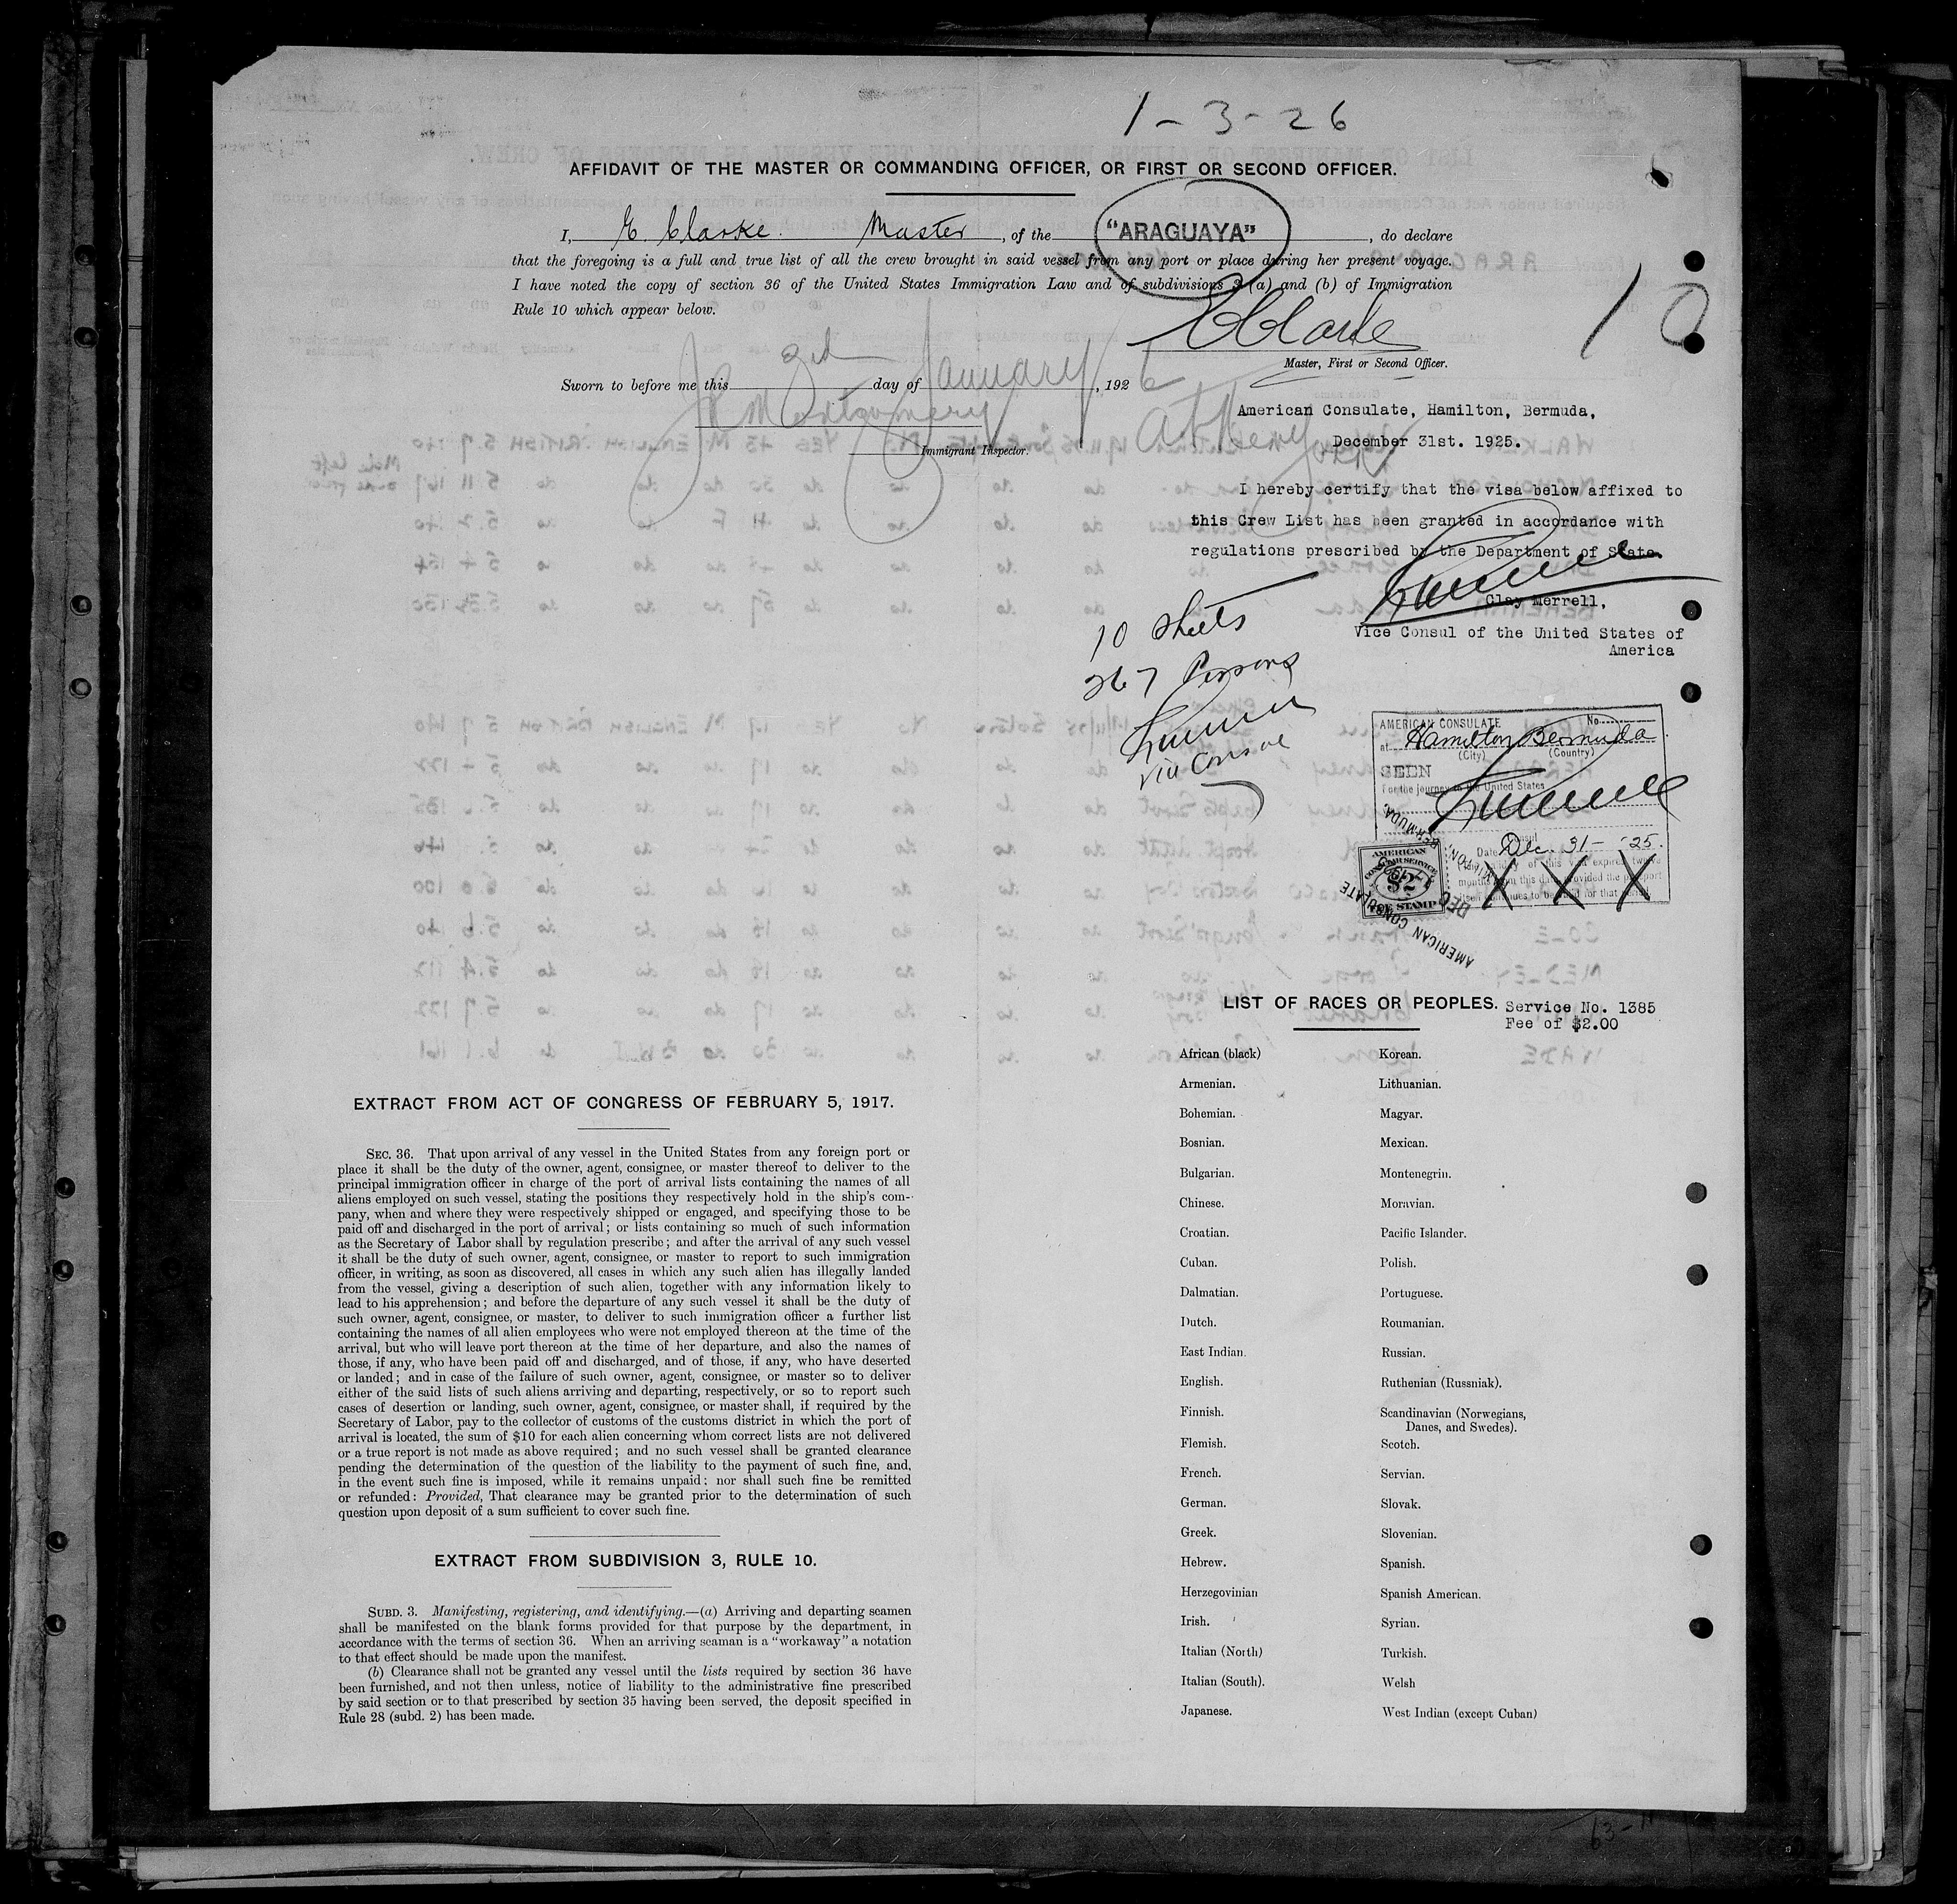 1-3-26
AFFIDAVIT OF THE MASTER OR COMMANDING OFFICER, OR FIRST OR SECOND OFFICER.
I, E. Clarke. Master, of the "ARAGUAYA", do declare
that the foregoing is a full and true list of all the crew brought in said vessel from any port or place during her present voyage.
I have noted the copy of section 36 of the United States Immigration Law and of subdivisions 3 (a) and (b) of Immigration
Rule 10 which appear below.
10
E Clarke
Master, First or Second Officer.
Sworn to before me this 3rd day of January, 1926
Montgomery
Immigrant Inspector.
American Consulate, Hamilton, Bermuda,
December 31st. 1925.
I hereby certify that the visa below affixed to
this Crew List has been granted in accordance with
regulations prescribed by the Department of State.
Clay Merrell,
Vice Consul of the United States of
America
10 Sheets
267 Persons
Vice Consul
AMERICAN CONSULATE No.
at Hamilton Bermuda
(City) (Country)
SEEN
For the journey to the United States
Consul
Date Dec. 31- '25.
The validity of this visa expires twelve
months from this date provided the passport
itself continues to be valid for that period.
X X X
AMERICAN
CONSULAR SERVICE
$2
FEE STAMP
AMERICAN CONSULATE
HAMILTON, BERMUDA.
DEC
LIST OF RACES OR PEOPLES.
Service No. 1385
Fee of $2.00
African (black)
Armenian.
Bohemian.
Bosnian.
Bulgarian.
Chinese.
Croatian.
Cuban.
Dalmatian.
Dutch.
East Indian.
English.
Finnish.
Flemish.
French.
German.
Greek.
Hebrew.
Herzegovinian
Irish.
Italian (North)
Italian (South).
Japanese.
Korean.
Lithuanian.
Magyar.
Mexican.
Montenegrin.
Moravian.
Pacific Islander.
Polish.
Portuguese.
Roumanian.
Russian.
Ruthenian (Russniak).
Scandinavian (Norwegians,
Danes, and Swedes).
Scotch.
Servian.
Slovak.
Slovenian.
Spanish.
Spanish American.
Syrian.
Turkish.
Welsh
West Indian (except Cuban)
EXTRACT FROM ACT OF CONGRESS OF FEBRUARY 5, 1917.
SEC. 36. That upon arrival of any vessel in the United States from any foreign port or
place it shall be the duty of the owner, agent, consignee, or master thereof to deliver to the
principal immigration officer in charge of the port of arrival lists containing the names of all
aliens employed on such vessel, stating the positions they respectively hold in the ship's com-
pany, when and where they were respectively shipped or engaged, and specifying those to be
paid off and discharged in the port of arrival; or lists containing so much of such information
as the Secretary of Labor shall by regulation prescribe; and after the arrival of any such vessel
it shall be the duty of such owner, agent, consignee, or master to report to such immigration
officer, in writing, as soon as discovered, all cases in which any such alien has illegally landed
from the vessel, giving a description of such alien, together with any information likely to
lead to his apprehension; and before the departure of any such vessel it shall be the duty of
such owner, agent, consignee, or master, to deliver to such immigration officer a further list
containing the names of all alien employees who were not employed thereon at the time of the
arrival, but who will leave port thereon at the time of her departure, and also the names of
those, if any, who have been paid off and discharged, and of those, if any, who have deserted
or landed; and in case of the failure of such owner, agent, consignee, or master so to deliver
either of the said lists of such aliens arriving and departing, respectively, or so to report such
cases of desertion or landing, such owner, agent, consignee, or master shall, if required by the
Secretary of Labor, pay to the collector of customs of the customs district in which the port of
arrival is located, the sum of $10 for each alien concerning whom correct lists are not delivered
or a true report is not made as above required; and no such vessel shall be granted clearance
pending the determination of the question of the liability to the payment of such fine, and,
in the event such fine is imposed, while it remains unpaid; nor shall such fine be remitted
or refunded: Provided, That clearance may be granted prior to the determination of such
question upon deposit of a sum sufficient to cover such fine.
EXTRACT FROM SUBDIVISION 3, RULE 10.
SUBD. 3. Manifesting, registering, and identifying.—(a) Arriving and departing seamen
shall be manifested on the blank forms provided for that purpose by the department, in
accordance with the terms of section 36. When an arriving seaman is a "workaway" a notation
to that effect should be made upon the manifest.
(b) Clearance shall not be granted any vessel until the lists required by section 36 have
been furnished, and not then unless, notice of liability to the administrative fine prescribed
by said section or to that prescribed by section 35 having been served, the deposit specified in
Rule 28 (subd. 2) has been made.